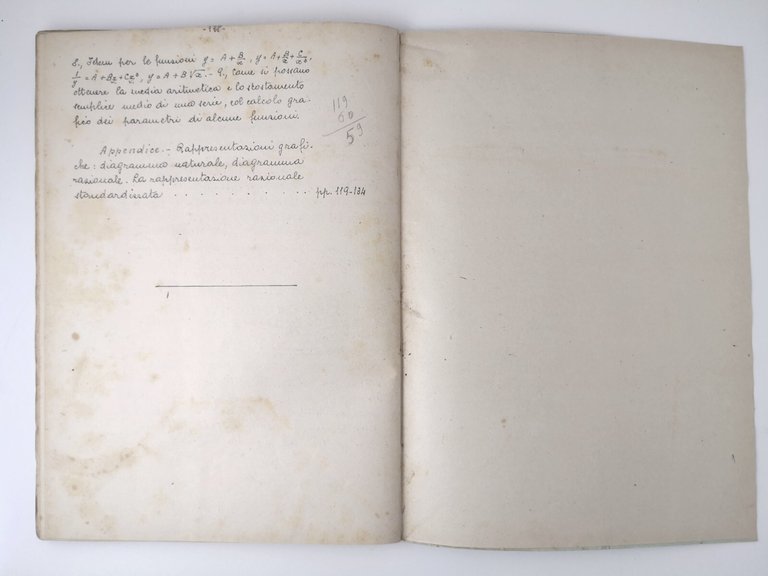 8., Idem per le funzioni y = A + B/x, y = A + B/x + C/x²,
1/y = A + Bx + Cx², y = A + B√x. - 9., Come si possano
ottenere la media aritmetica e lo scostamento
semplice medio di una serie, col calcolo gra-
fico dei parametri di alcune funzioni.
119
60
59
Appendice. - Rappresentazioni grafi-
che: diagramma naturale, diagramma
razionale. La rappresentazione razionale
standardizzata . . . . . . . . . . pp. 119-134